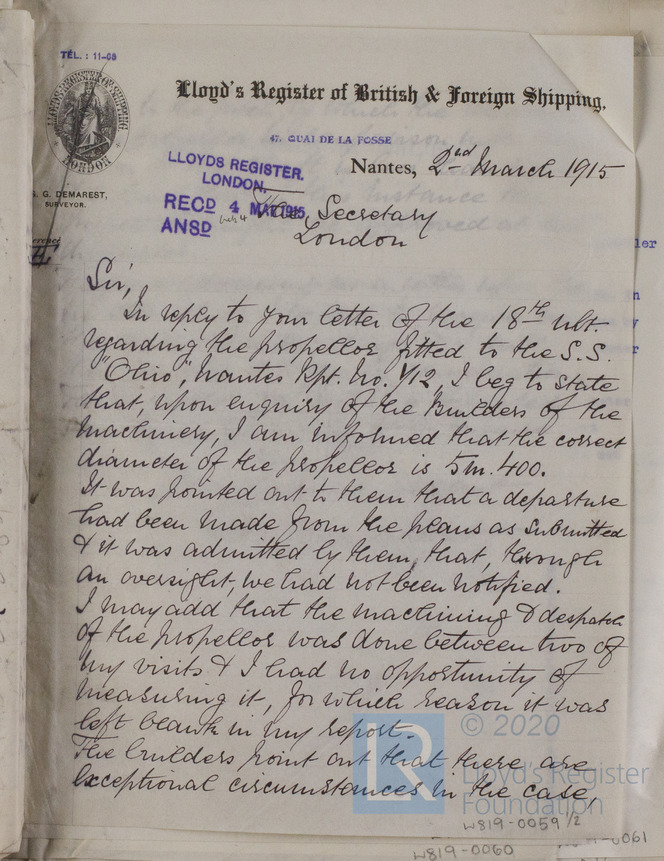 TÉL. : 11-68
Lloyd's Register of British & Foreign Shipping,
LLOYD'S REGISTER OF SHIPPING
LONDON
47, QUAI DE LA FOSSE
Nantes, 2nd March 1915
G. DEMAREST,
SURVEYOR.
LLOYDS REGISTER.
LONDON.
RECD 4 MAR 1915
ANSD
The Secretary
London
Sir,
In reply to your letter of the 18th ult.
regarding the propellor fitted to the S.S.
"Ohio", Nantes Rpt. No. 412, I beg to state
that, upon enquiry of the Builders of the
Machinery, I am informed that the correct
diameter of the propellor is 5m.400.
It was pointed out to them that a departure
had been made from the plans as submitted
& it was admitted by them, that, through
an oversight, we had not been notified.
I may add that the machining & despatch
of the propellor was done between two of
my visits & I had no opportunity of
measuring it, for which reason it was
left blank in my report.
The builders point out that there are
exceptional circumstances in the case,
LR
© 2020
Lloyd's Register
Foundation
W819-0059 1/2
W819-0060
0061